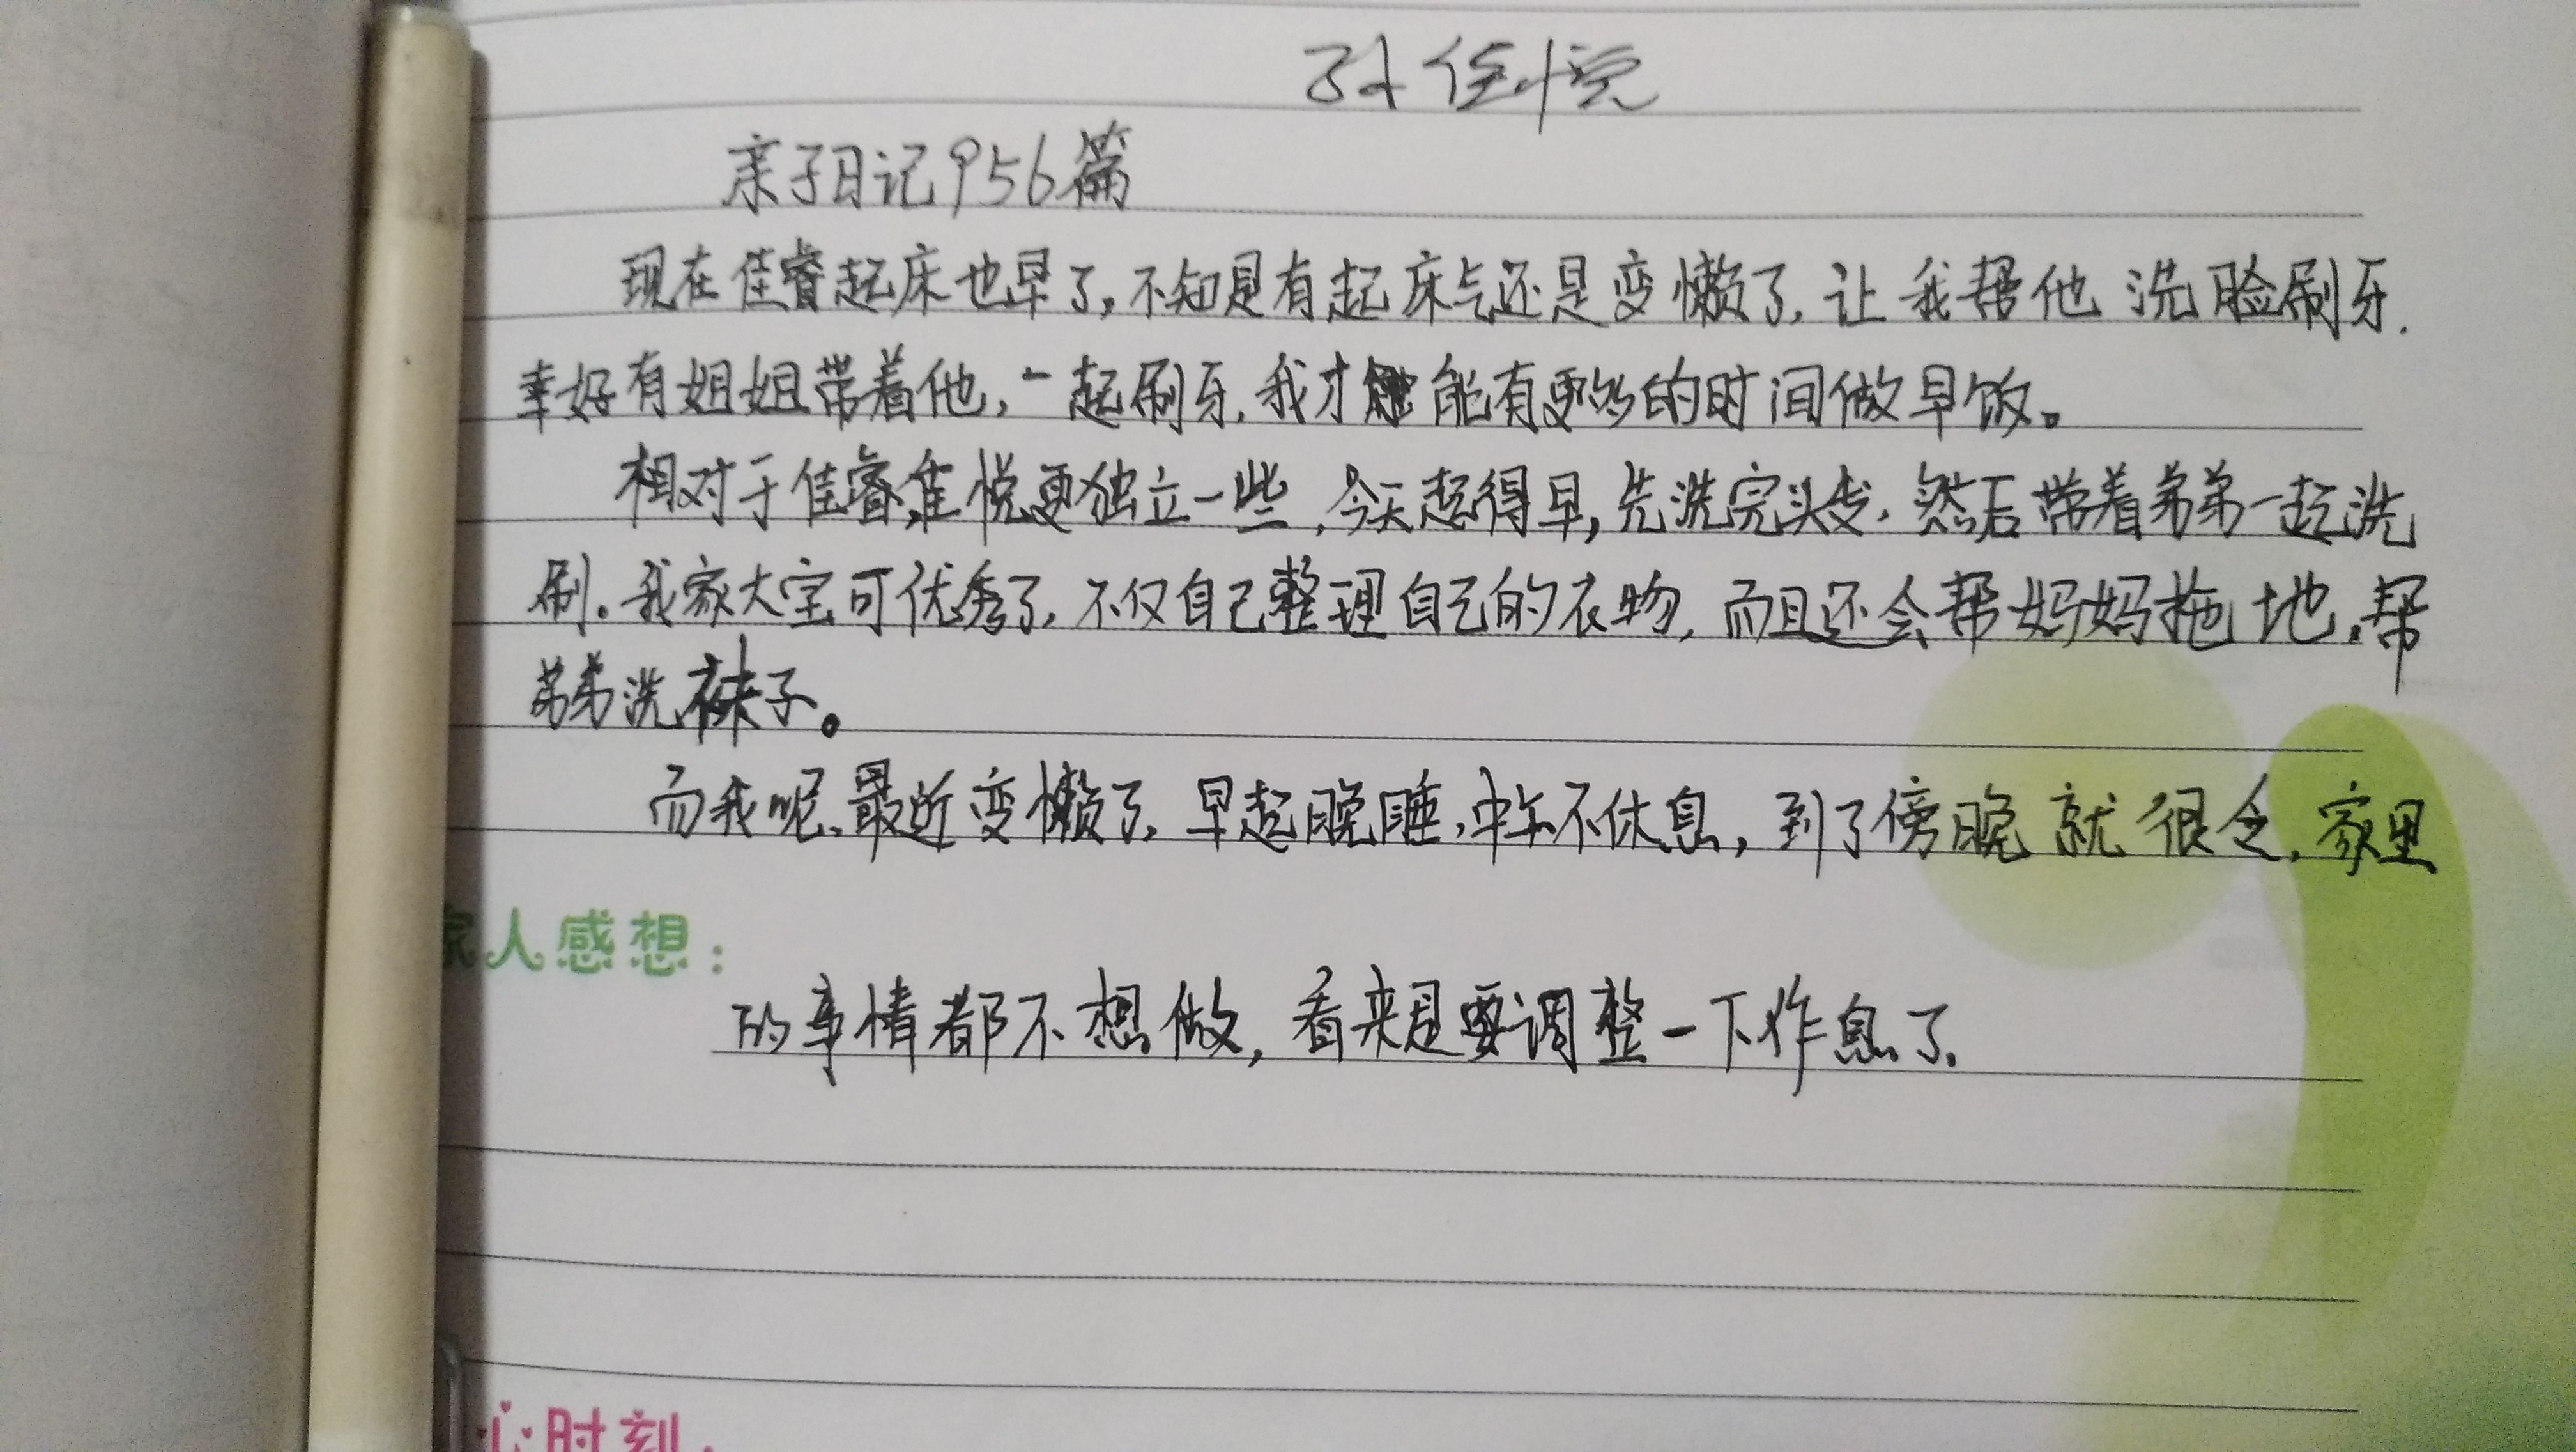 孙佳悦
亲子日记956篇
现在佳睿起床也早了,不知是有起床气还是变懒了,让我帮他洗脸刷牙.
幸好有姐姐带着他,一起刷牙,我才能有更多的时间做早饭。
相对于佳睿,佳悦更独立一些,今天起得早,先洗完头发,然后带着弟弟一起洗
刷。我家大宝可优秀了,不仅自己整理自己的衣物,而且还会帮妈妈拖地,帮
弟弟洗袜子。
而我呢、最近变懒了,早起晚睡,中午不休息,到了傍晚就很仒,家里
家人感想:
的事情都不想做,看来是要调整一下作息了.
心时刻: